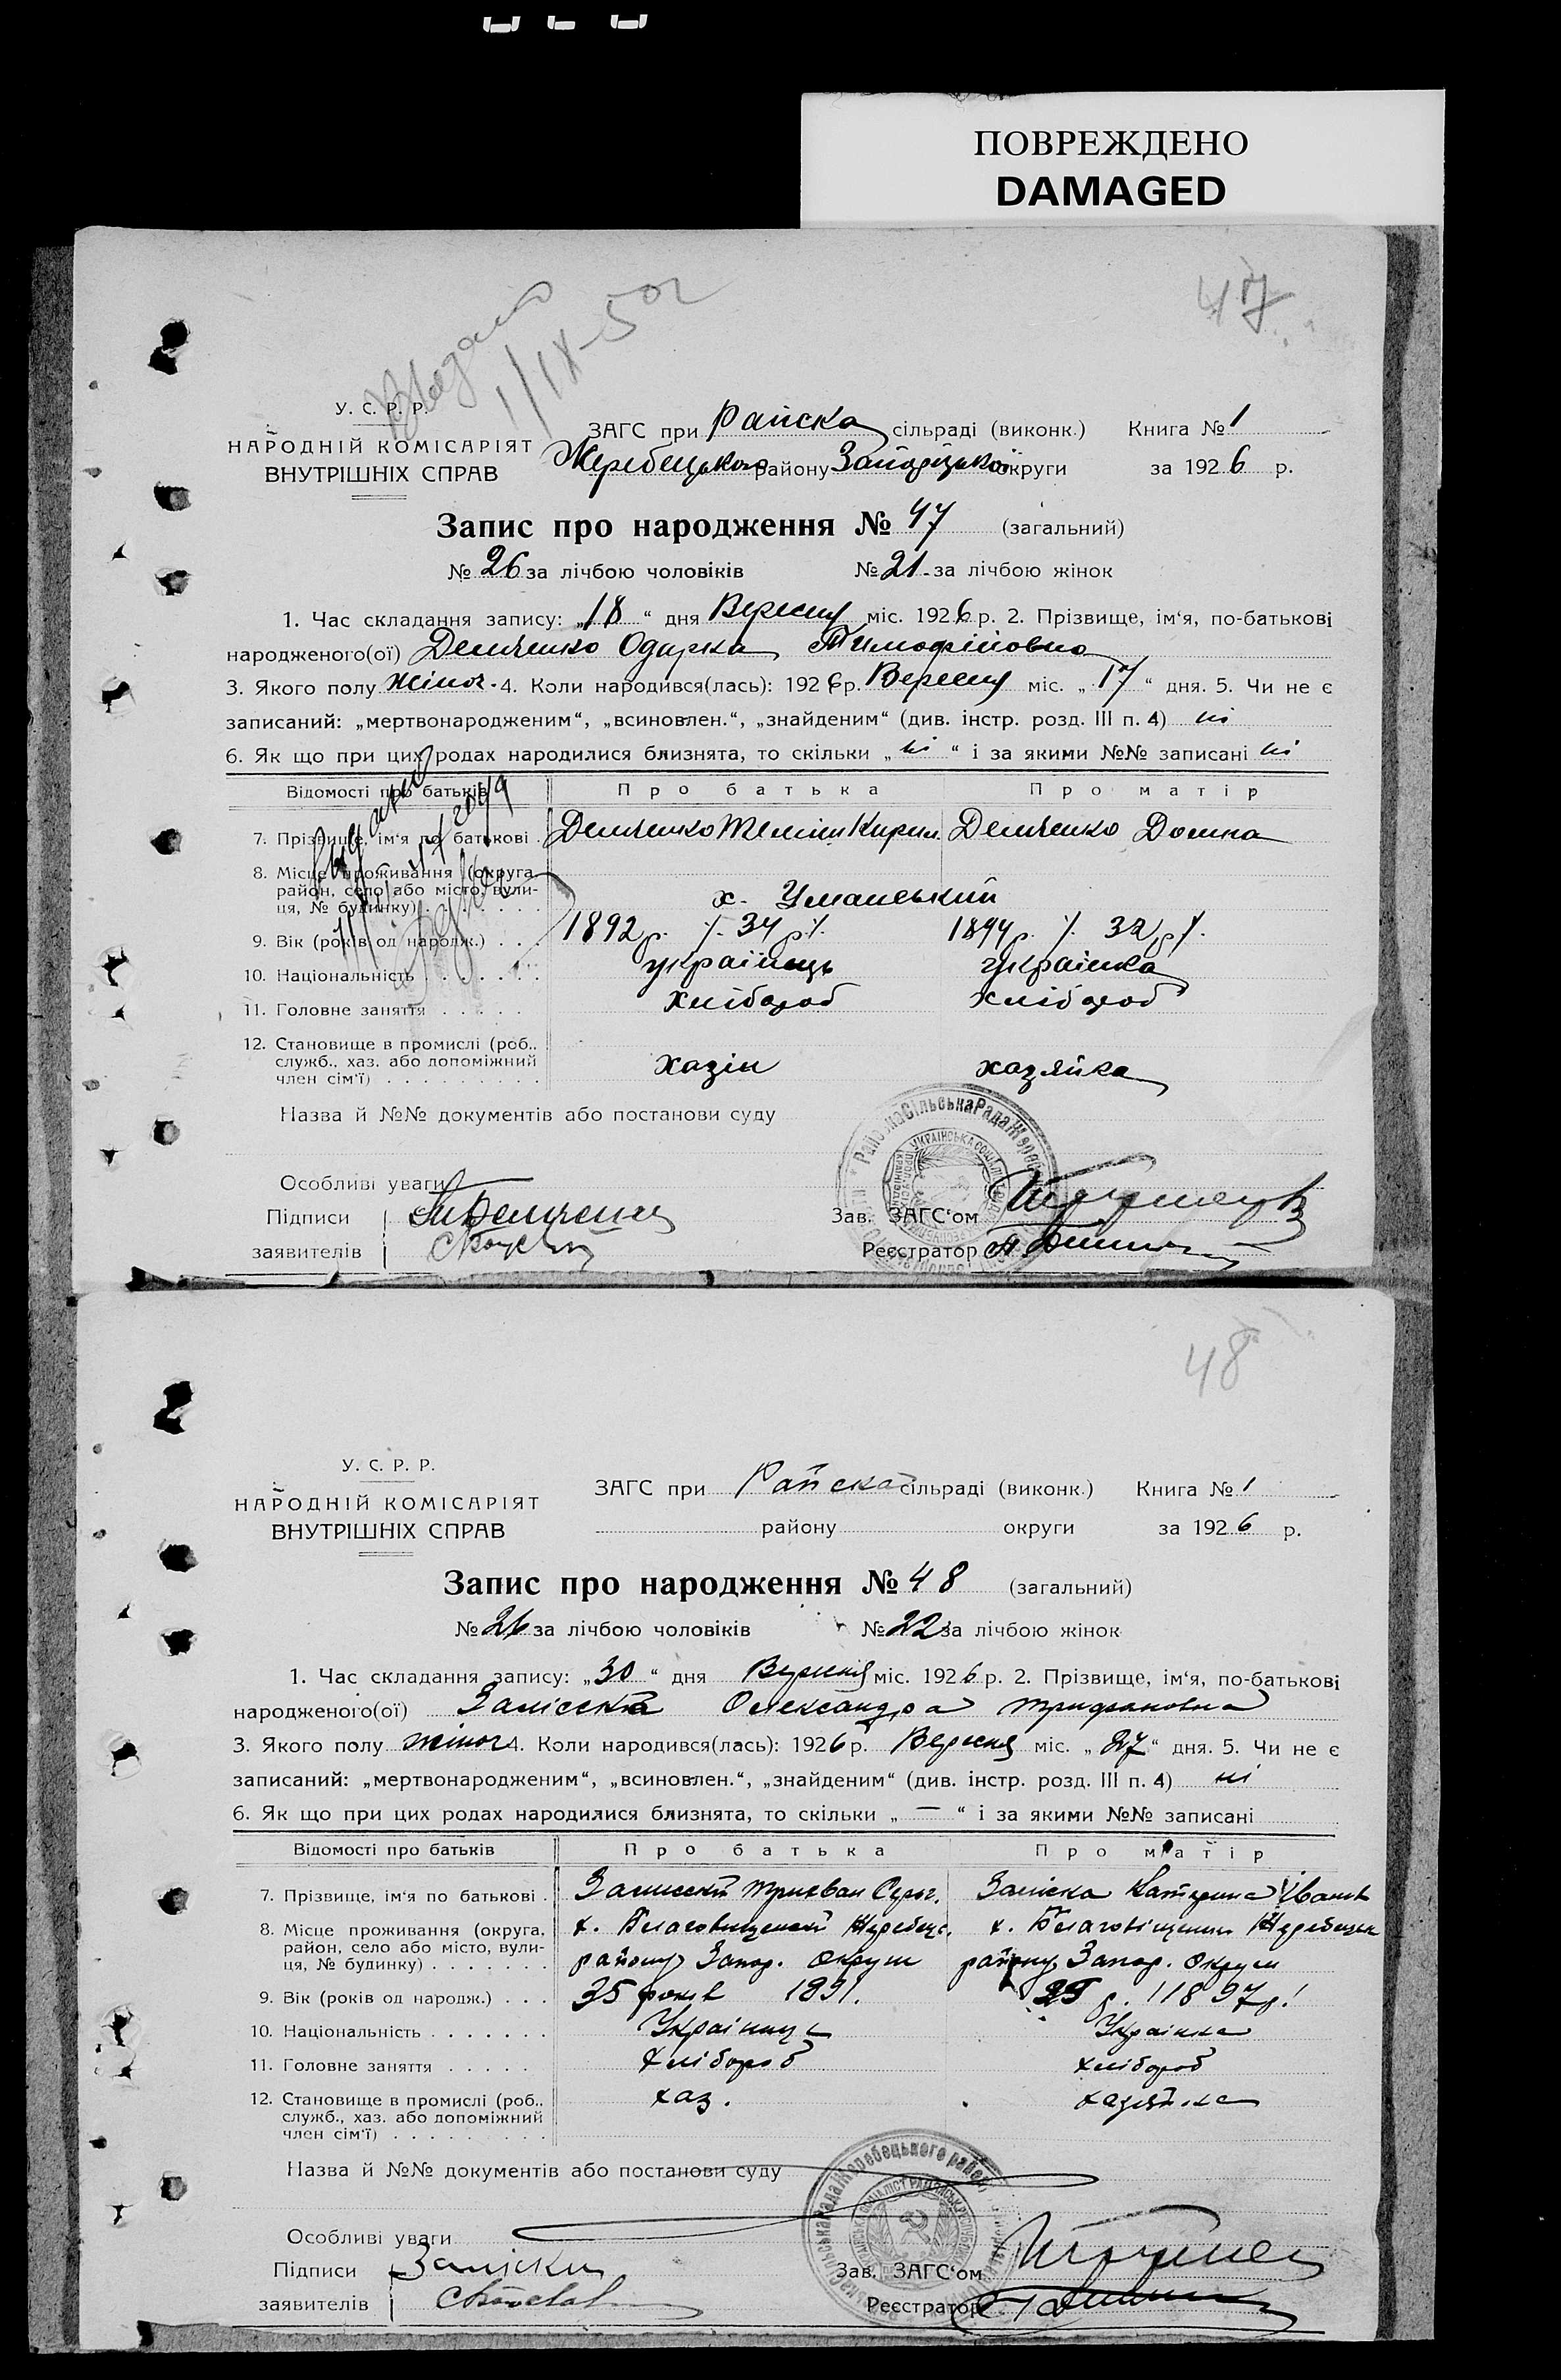 ПОВРЕЖДЕНО
DAMAGED
47
Видано 1/IX-50г
У. С. Р. Р.
НАРОДНІЙ КОМІСАРІЯТ
ВНУТРІШНІХ СПРАВ
ЗАГС при Райска сільраді (виконк.) Книга № 1
Жеребецького району Запорізької округи за 1926 р.
Запис про народження № 47 (загальний)
№ 26 за лічбою чоловіків № 21 за лічбою жінок
1. Час складання запису: „18“ дня Вересня міс. 1926 р. 2. Прізвище, ім‘я, по-батькові
народженого(ої) Демченко Одарка Тимофіїовна
3. Якого полу жіноч. 4. Коли народився(лась): 1926 р. Вересня міс. „17“ дня. 5. Чи не є
записаний: „мертвонародженим“, „всиновлен.“, „знайденим“ (див. інстр. розд. III п. 4) ні
6. Як що при цих родах народилися близнята, то скільки „ні“ і за якими №№ записані ні
Відомості про батьків Про батька Про матір
7. Прізвище, ім‘я по батькові Демченко Кирил. Демченко Домна
8. Місце проживання (округа,
район, село або місто, вули-
ця, № будинку) х. Уманський
9. Вік (років од народж.) 1892 р. 34 р. 1894 р. 32 р.
10. Національність українець українка
11. Головне заняття хлібороб хлібороб
12. Становище в промислі (роб.,
служб., хаз. або допоміжний
член сім‘ї) хазін хазяйка
Назва й №№ документів або постанови суду
Особливі уваги
Підписи Демченко Зав. ЗАГС‘ом
заявителів Реєстратор
48
У. С. Р. Р.
НАРОДНІЙ КОМІСАРІЯТ
ВНУТРІШНІХ СПРАВ
ЗАГС при Райска сільраді (виконк.) Книга № 1
району округи за 1926 р.
Запис про народження № 48 (загальний)
№ 26 за лічбою чоловіків № 22 за лічбою жінок
1. Час складання запису: „30“ дня Вересня міс. 1926 р. 2. Прізвище, ім‘я, по-батькові
народженого(ої) Заліська Олександра Трифановна
3. Якого полу жіноч 4. Коли народився(лась): 1926 р. Вересня міс. „27“ дня. 5. Чи не є
записаний: „мертвонародженим“, „всиновлен.“, „знайденим“ (див. інстр. розд. III п. 4) ні
6. Як що при цих родах народилися близнята, то скільки „—“ і за якими №№ записані
Відомості про батьків Про батька Про матір
7. Прізвище, ім‘я по батькові Трифан Заліска Катерина Іванів
8. Місце проживання (округа, х. Благовищенский Жеребець. х. Благовіщенки Жеребецьк
район, село або місто, вули- району Запор. округи району Запор. округи
ця, № будинку)
9. Вік (років од народж.) 35 років 1891. 29 р. 1897 р.
10. Національність Українець Українка
11. Головне заняття хлібороб хлібороб
12. Становище в промислі (роб.,
служб., хаз. або допоміжний
член сім‘ї) хаз. хазяйка
Назва й №№ документів або постанови суду
Особливі уваги
Підписи Заліски Зав. ЗАГС‘ом
заявителів Реєстратор